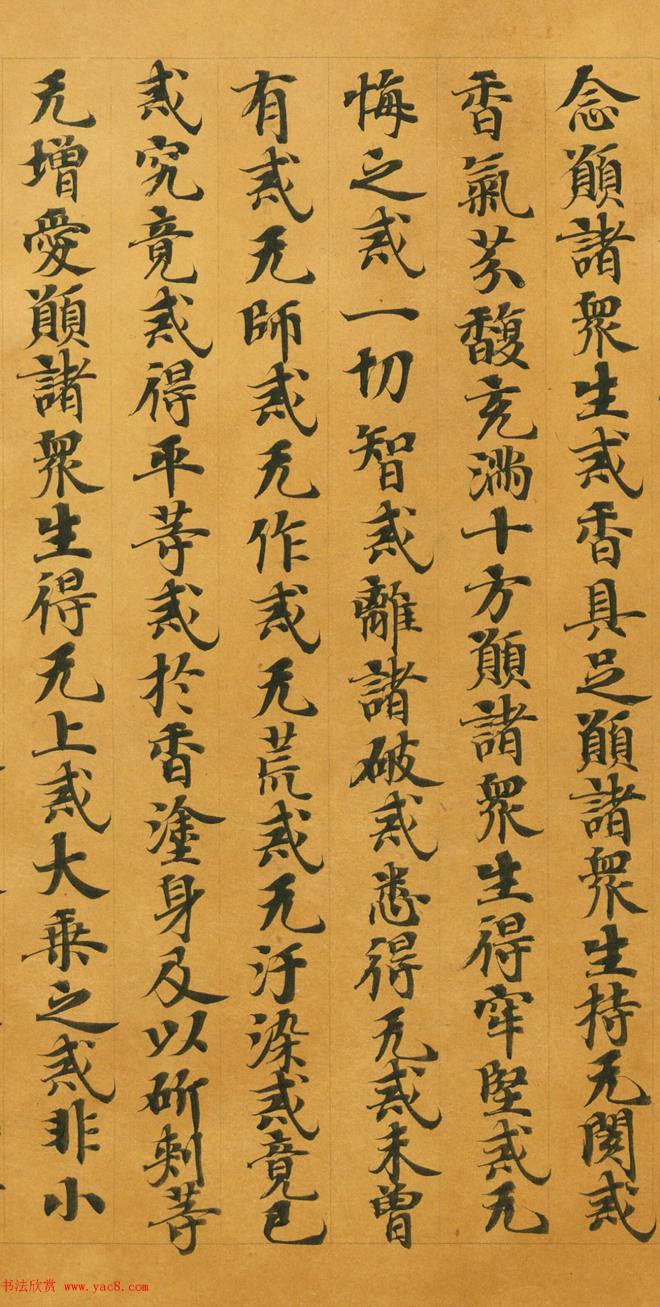 念願諸衆生戒香具足願諸衆生持无閡戒
香氣芬馥充滿十方願諸衆生得牢堅戒无
悔之戒一切智戒離諸破戒悉得无戒未曾
有戒无師戒无作戒无荒戒无汙染戒竟已
戒究竟戒得平等戒於香塗身及以斫刺等
无增愛願諸衆生得无上戒大乗之戒非小
书法欣赏 www.yac8.com